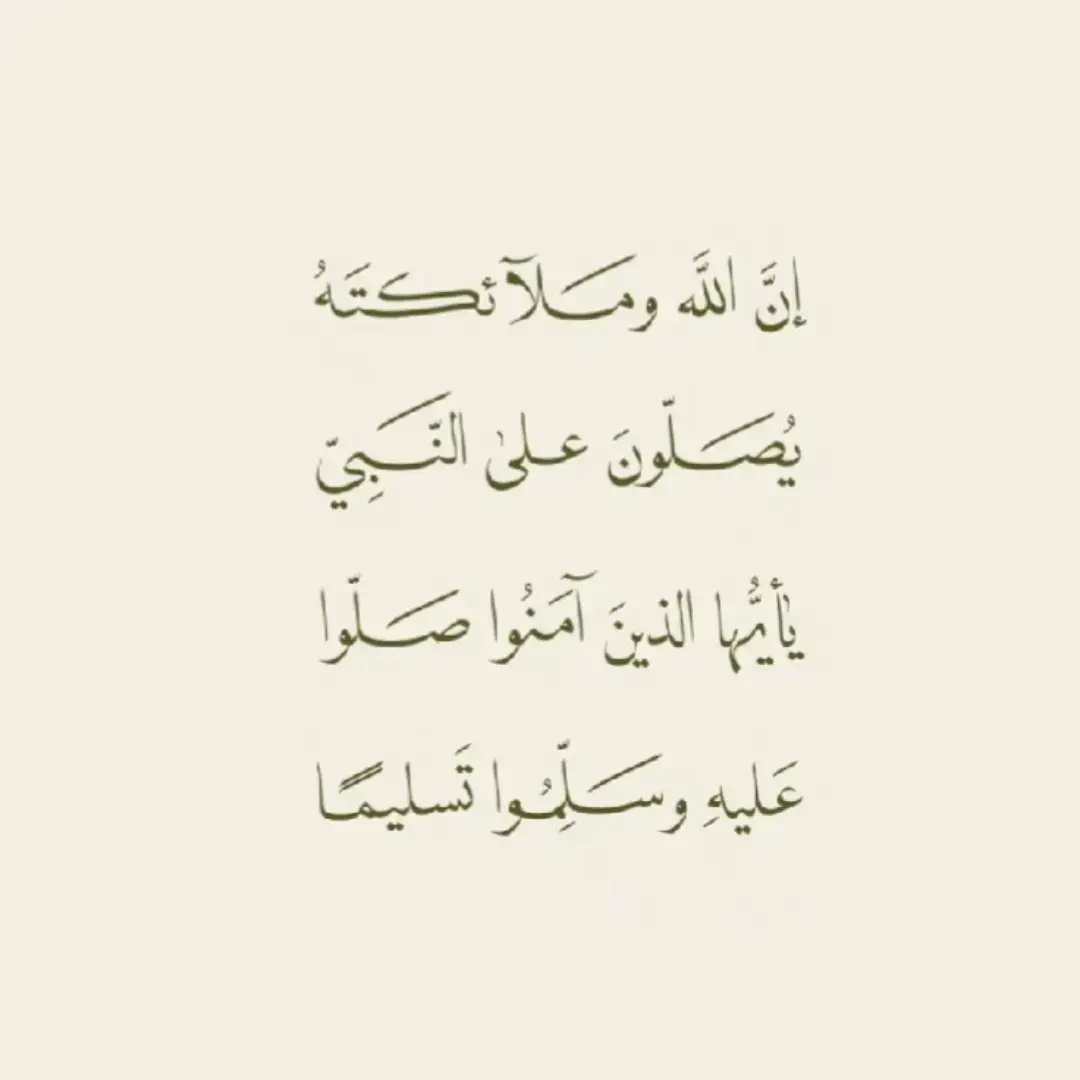 إنَّ اللَّه ومَلآئكتَهُ
يُصَلّونَ علىٰ النَّبِيّ
يٰأيُّها الذينَ آمَنُوا صَلّوا
عَليهِ وسَلِّمُوا تَسليمًا